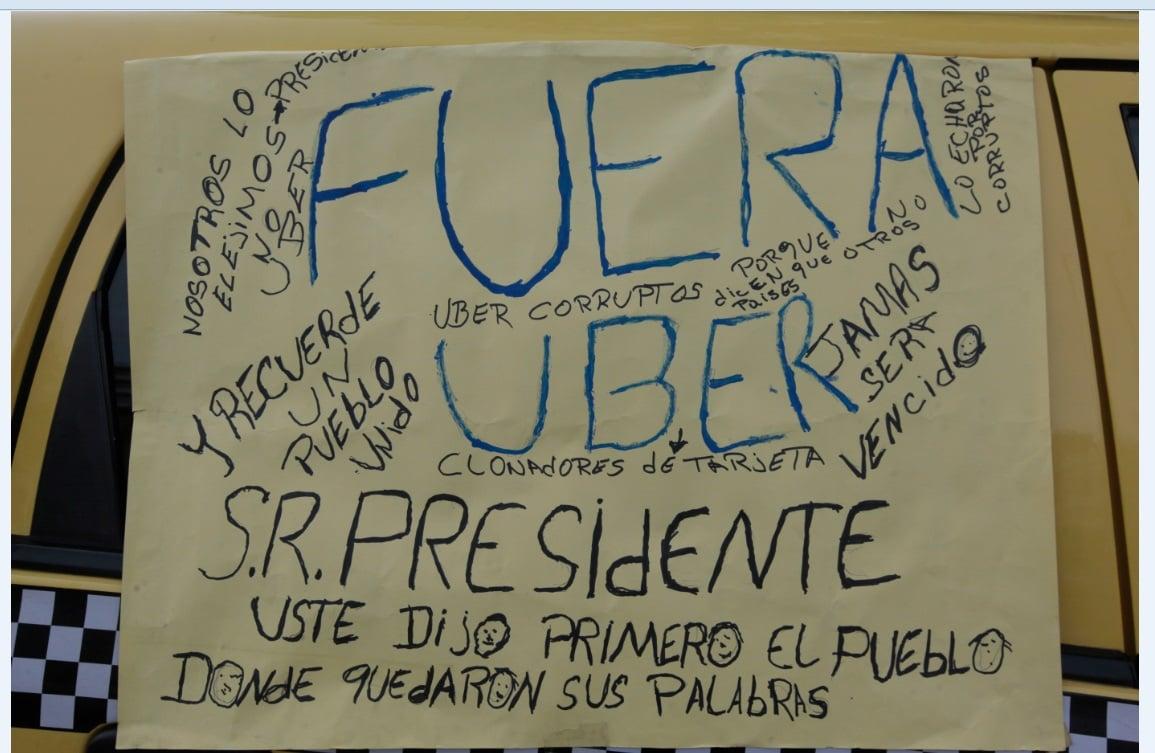 NOSOTROS LO
ELEJIMOS → PRESIdENT
NO
UBER
FUERA
LO ECHARON
POR
CORRUPTOS
UBER CORRUPTOS
PORQUE
dicEN QUE OTROS NO
PAISES
UBER
Y RECUERdE
UN
PUEbLO
UNidO
JAMAS
SERA
VENCidO
CLONAdORES dE TARJETA
S.R. PRESidENTE
USTE DijO PRIMERO EL PUEbLO
DONdE QUEdARON SUS PALAbRAS